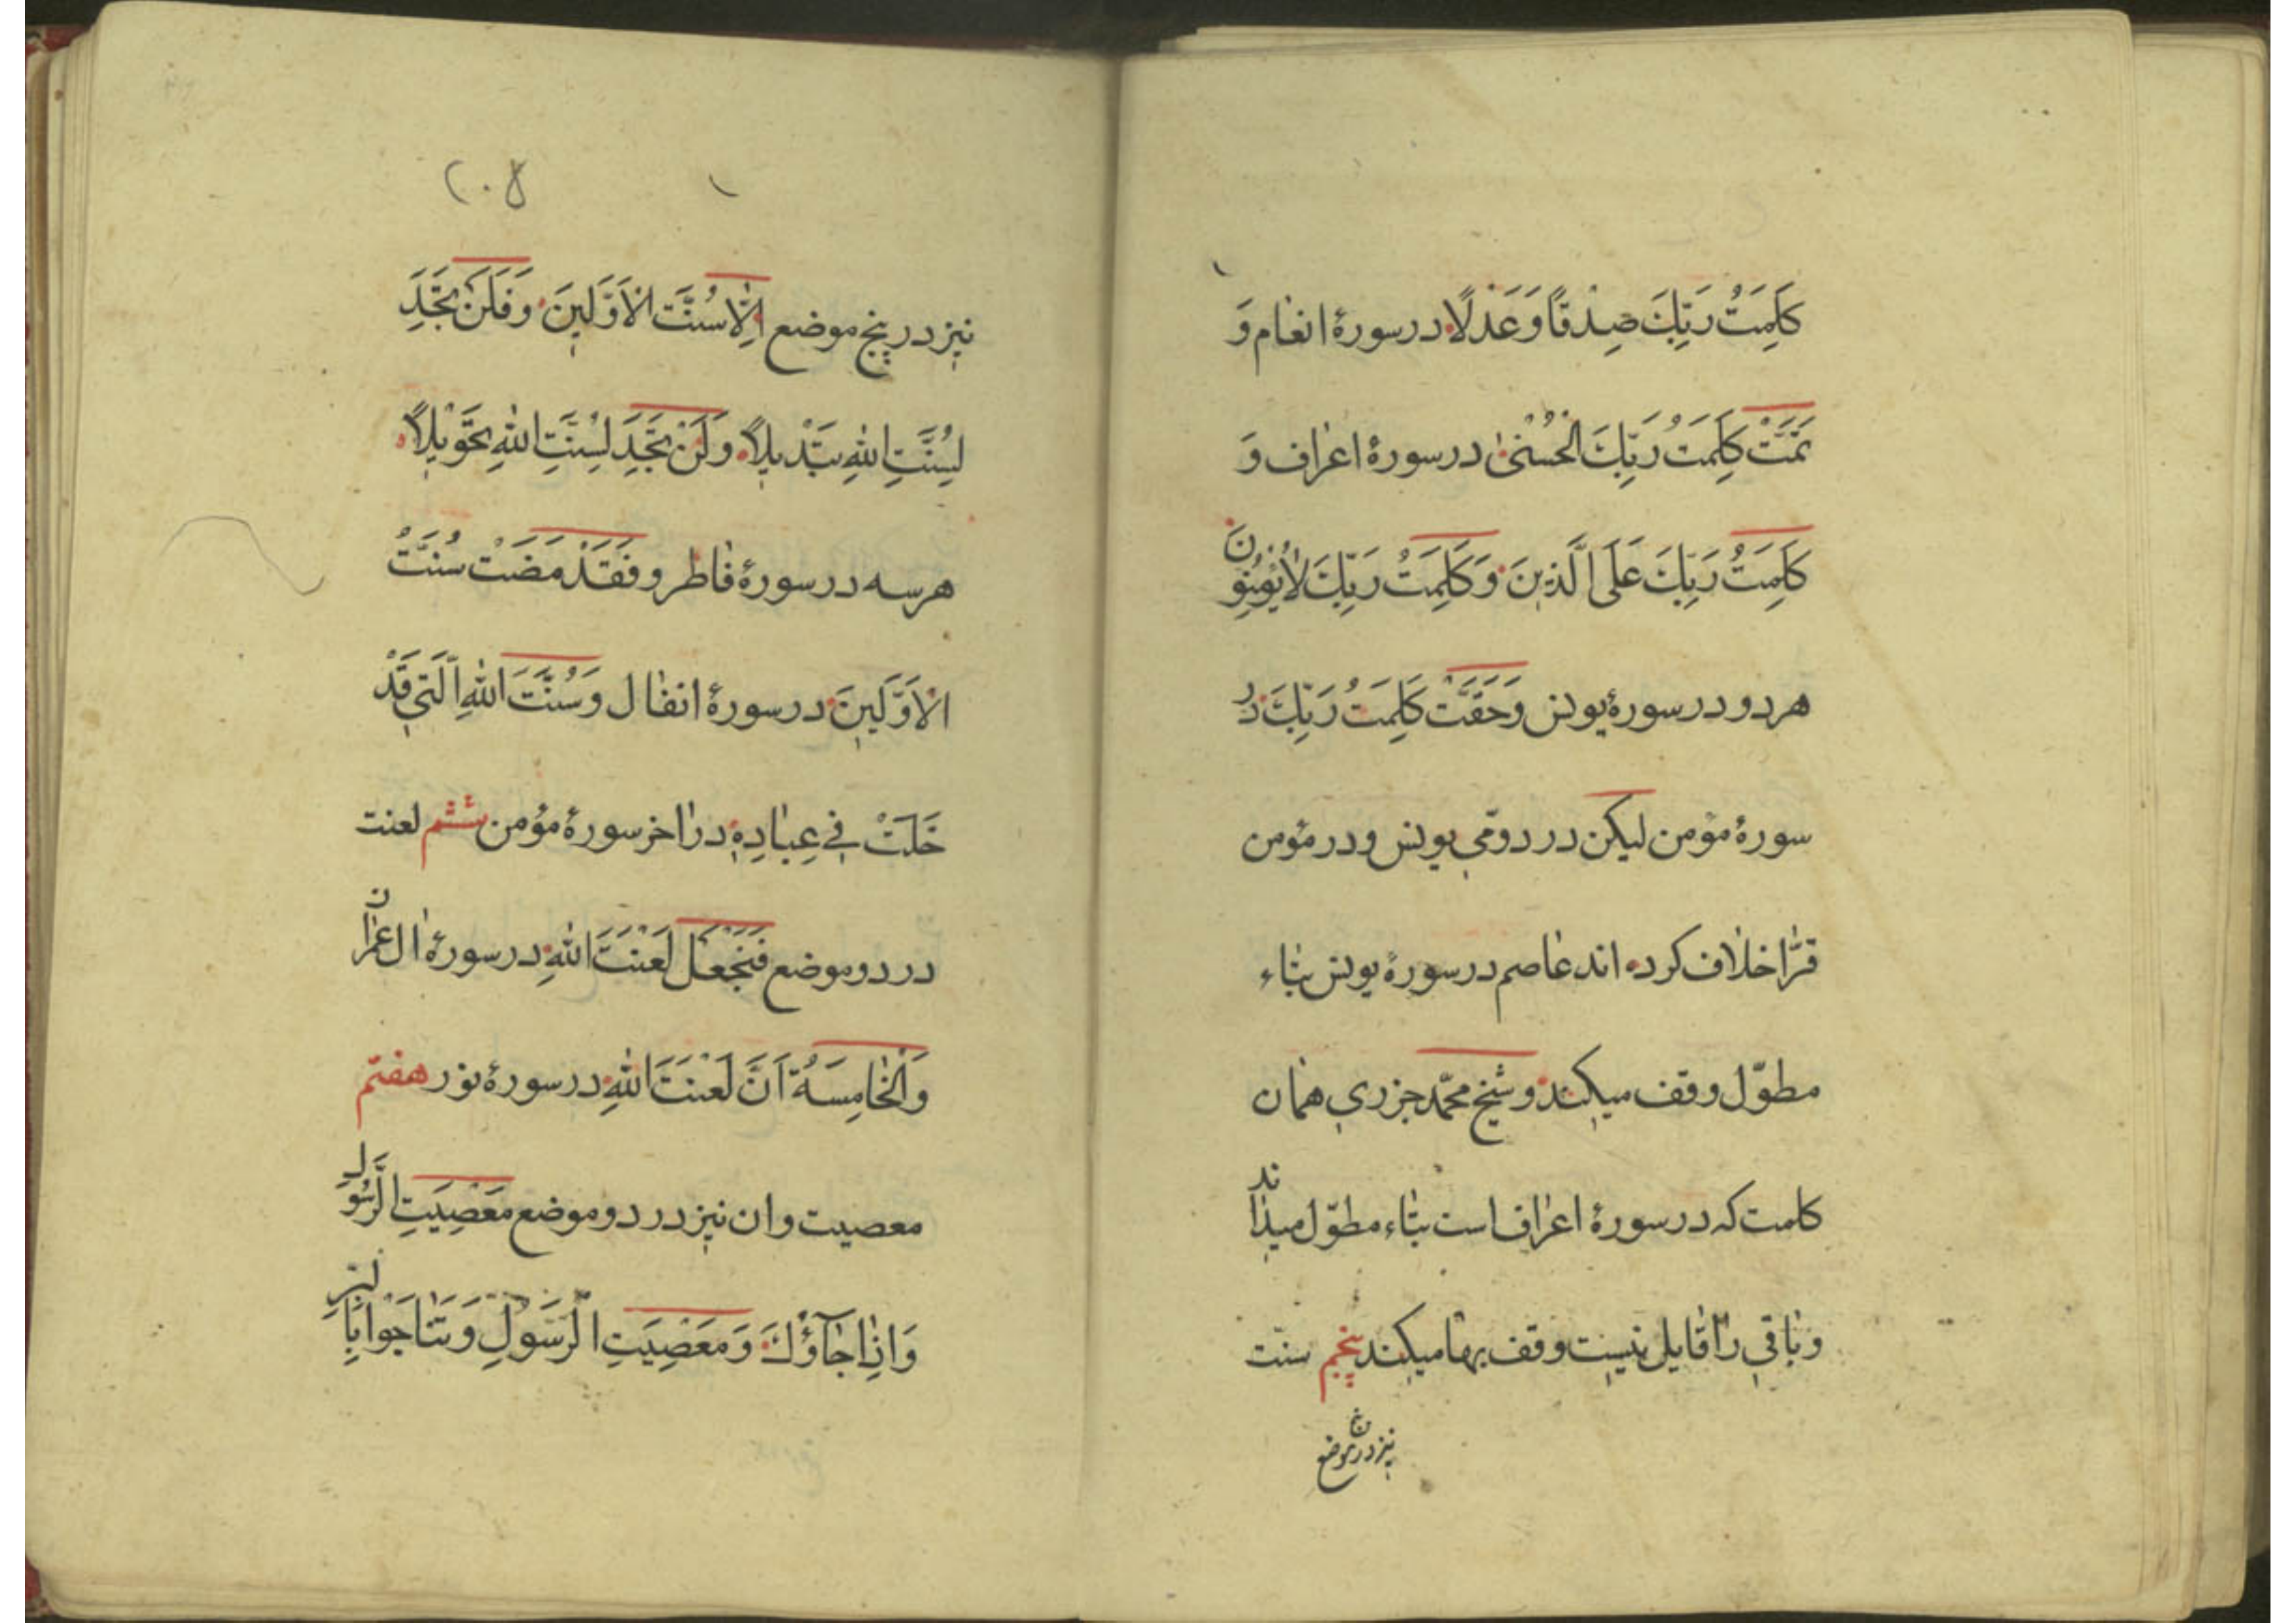 كَلِمَتُ رَبِّكَ صِدْقًا وَعَدْلًا در سورهٔ انعام وَ
تَمَّتْ كَلِمَتُ رَبِّكَ الْحُسْنىٰ در سورهٔ اعراف وَ
كَلِمَتُ رَبِّكَ عَلَى الَّذينَ وَكَلِمَتُ رَبِّكَ لٰا يُؤْمِنُونَ
هر دو در سورهٔ یونس وَحَقَّتْ كَلِمَتُ رَبِّكَ در
سورهٔ مؤمن لیکن در دومی یونس و در مؤمن
قرّا خلاف کرده اند عاصم در سورهٔ یونس بتاء
مطوّل وقف میکند و شیخ محمّد جزری همان
کلمت که در سورهٔ اعراف است بتاء مطوّل میداند
و باقی را قایل نیست وقف بها میکند پنجم سنت
نیز در پنج موضع
۲۰۵
نیز در پنج موضع اِلّٰا سُنَّتَ الْاَوَّلينَ وَ فَلَنْ تَجِدَ
لِسُنَّتِ اللّٰهِ تَبْديلًا وَلَنْ تَجِدَ لِسُنَّتِ اللّٰهِ تَحْويلًا
هر سه در سورهٔ فاطر و فَقَدْ مَضَتْ سُنَّتُ
الْاَوَّلينَ در سورهٔ انفال وَ سُنَّتَ اللّٰهِ الَّتي قَدْ
خَلَتْ في عِبٰادِهِ در اخر سورهٔ مؤمن ششم لعنت
در دو موضع فَنَجْعَلْ لَعْنَتَ اللّٰهِ در سورهٔ ال عمران
وَالْخٰامِسَةُ اَنَّ لَعْنَتَ اللّٰهِ در سورهٔ نور هفتم
معصیت و ان نیز در دو موضع مَعْصِيَتِ الرَّسُولِ
وَاِذٰا جٰآؤُكَ وَ مَعْصِيَتِ الرَّسُولِ وَتَنٰاجَوْا بِالْبِرِّ